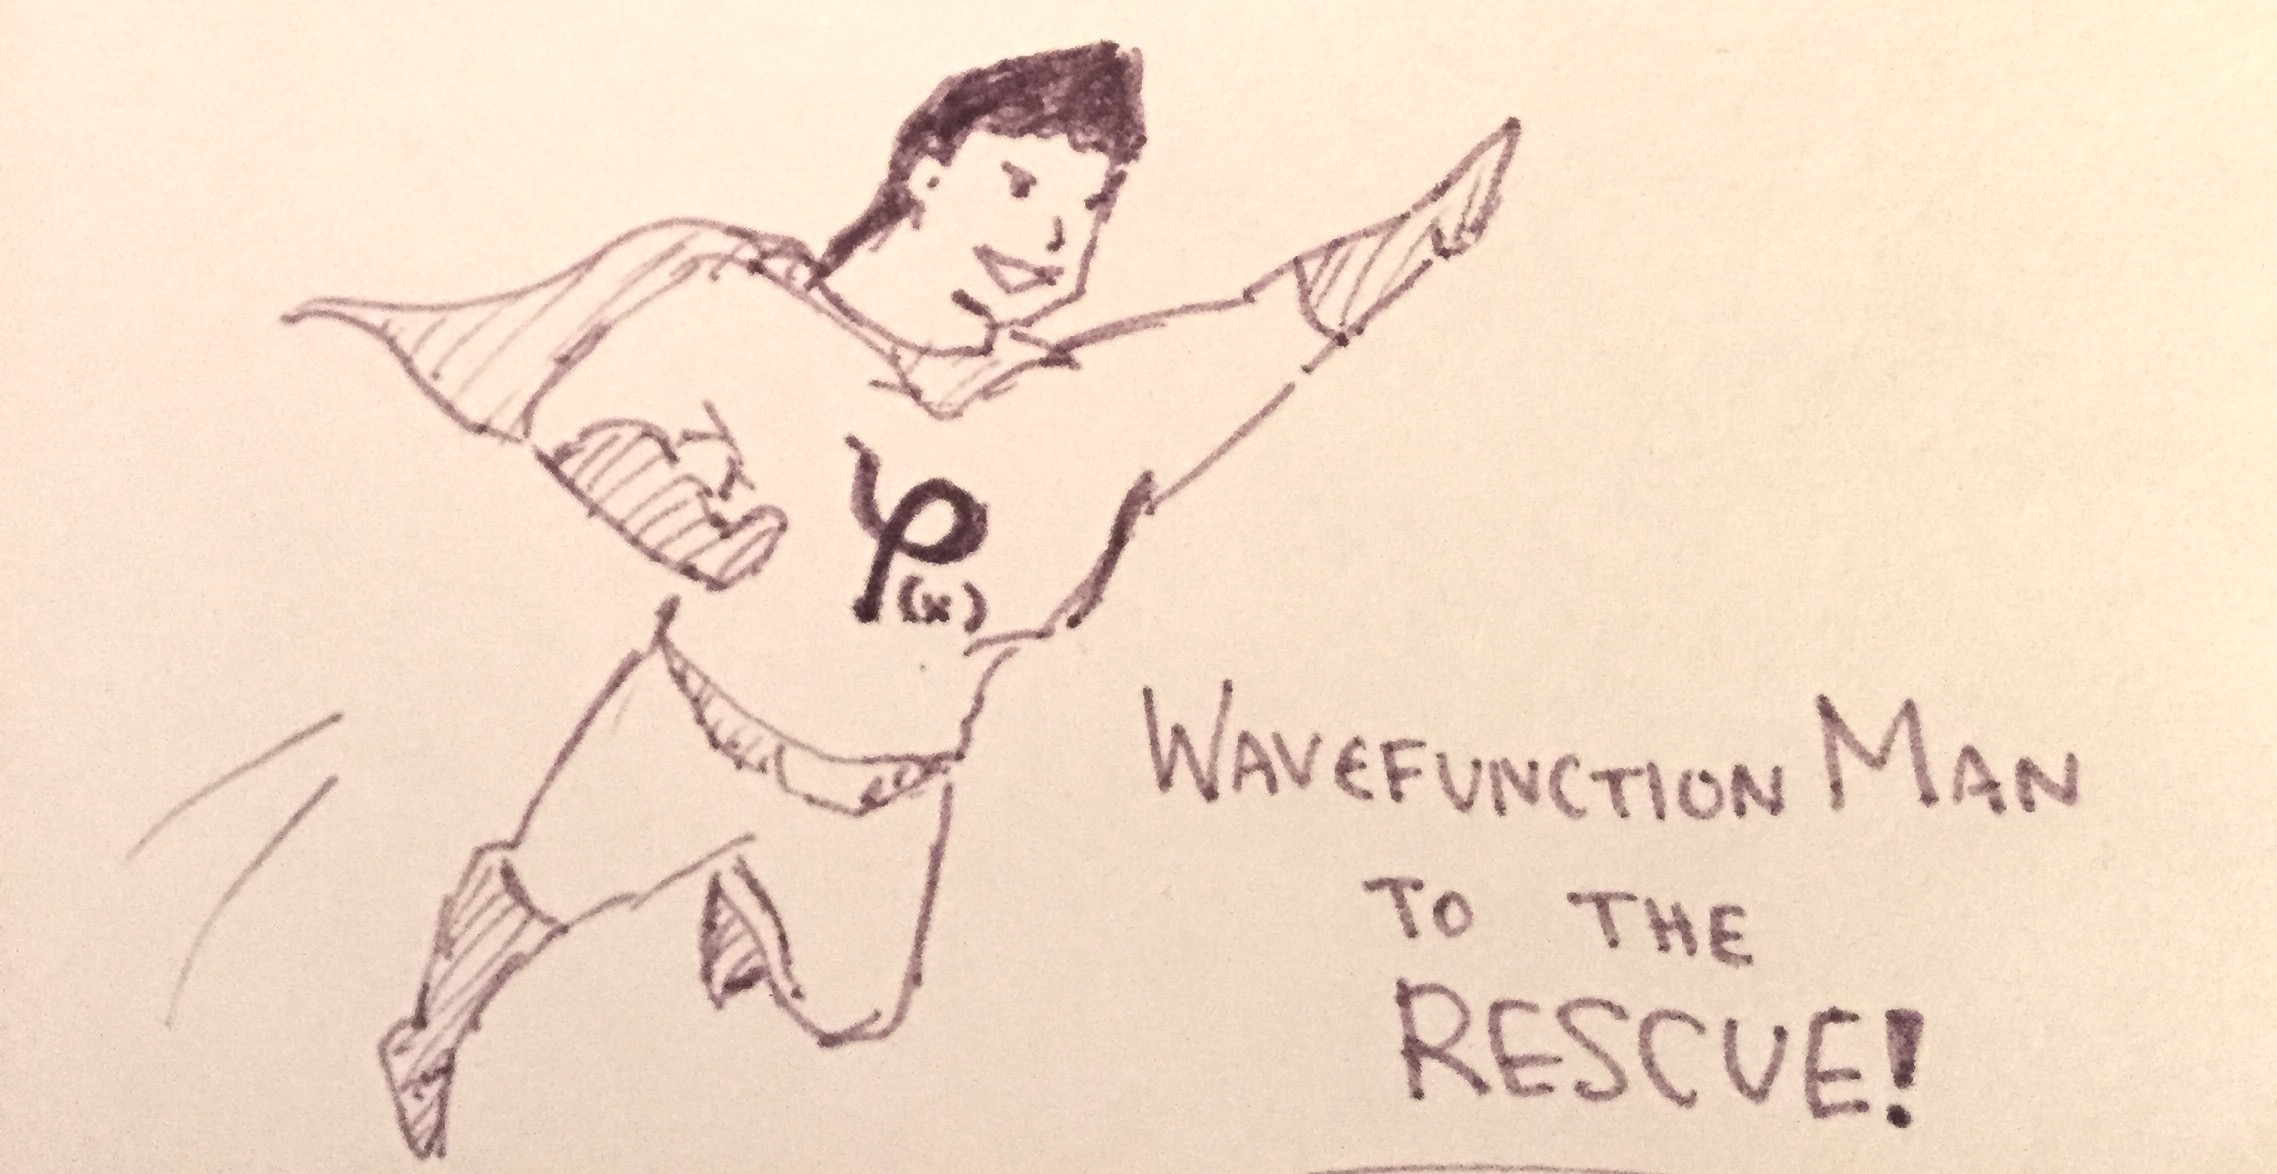 φ(x)
WAVEFUNCTION MAN
TO THE
RESCUE!